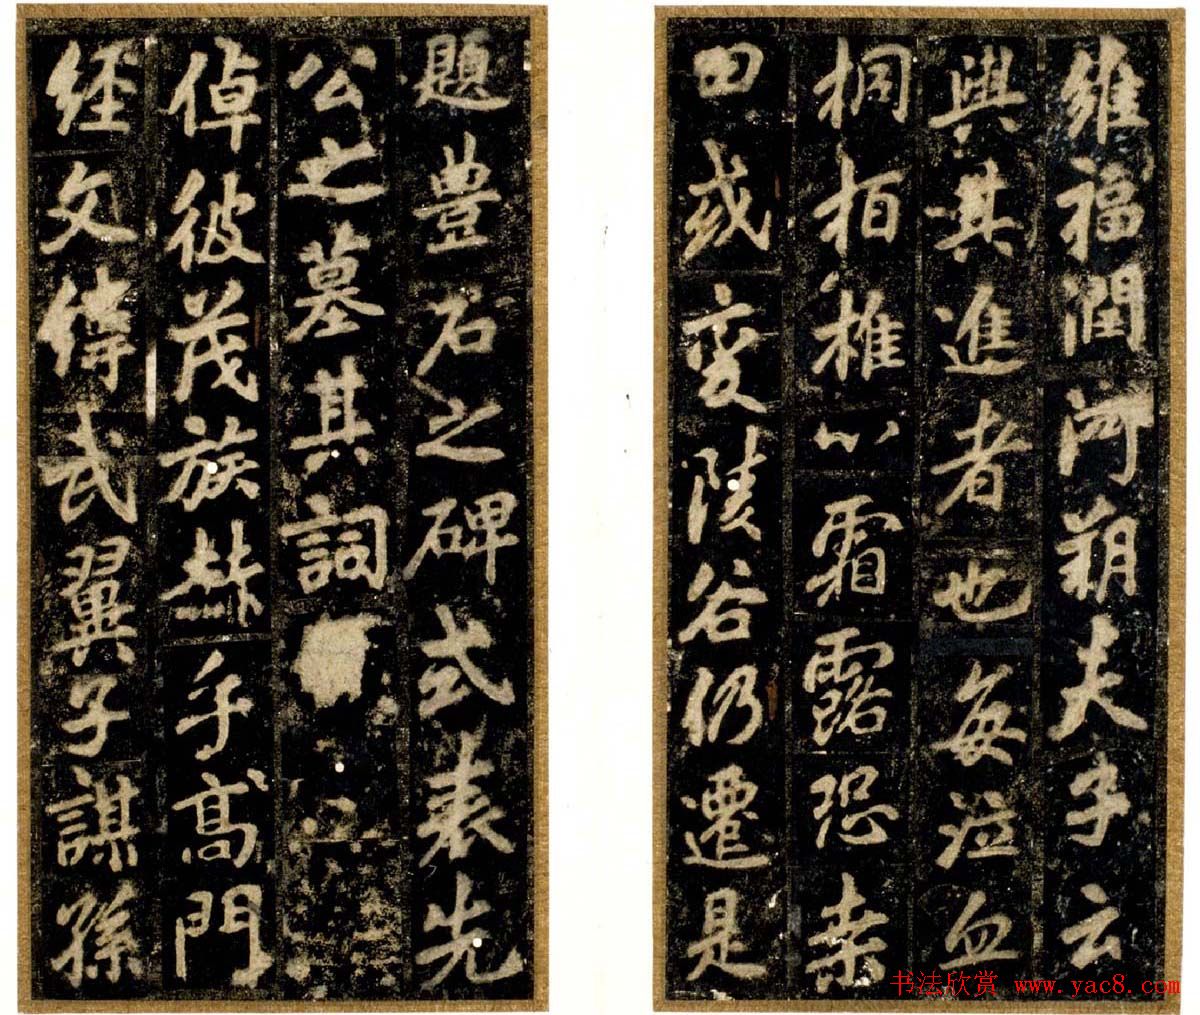 維福潤河朔夫子云
與其進者也每泣血
桐栢椎心霜露恐桒
田或變陵谷仍遷是
題豐石之碑式表先
公之墓其詞
倬彼茂族赫乎高門
經文緯武翼子謀孫
书法欣赏 www.yac8.com